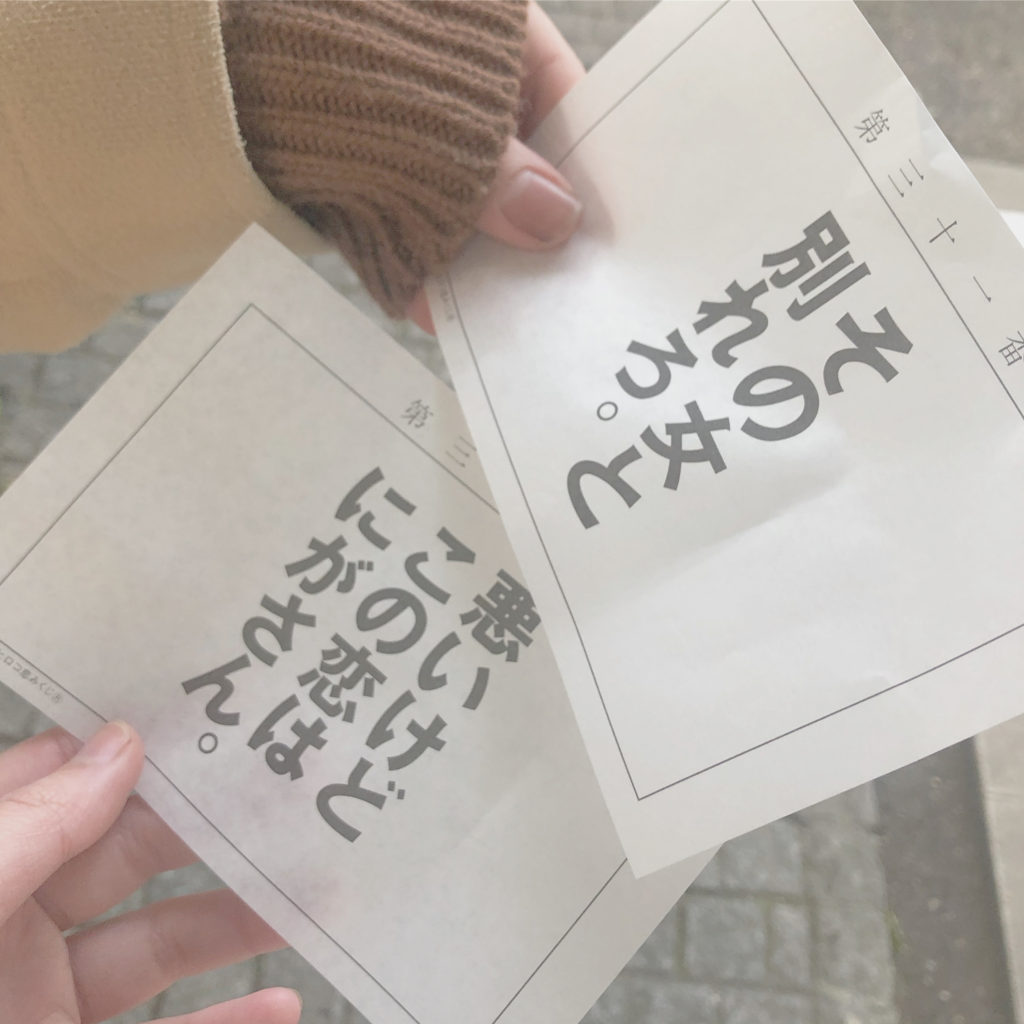 第三十一番
その女と
別れろ。
第三
悪いけど
この恋は
にがさん。